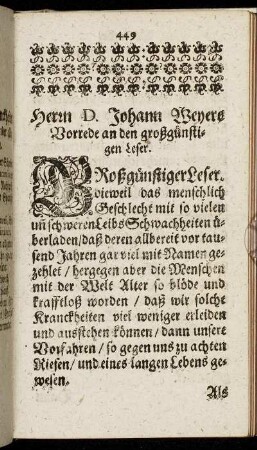 449
Herrn D. Johann Weyers
Vorrede an den großgünsti-
gen Leser.
GRoßgünstiger Leser.
dieweil das menschlich
Geschlecht mit so vielen
un schweren Leibs Schwachheiten ü-
berladen / daß deren allbereit vor tau-
send Jahren gar viel mit Namen ge-
zehlet / hergegen aber die Menschen
mit der Welt Alter so blöde und
krafftloß worden / daß wir solche
Kranckheiten viel weniger erleiden
und ausstehen können / dann unsere
Vorfahren / so gegen uns zu achten
Riesen / und eines langen Lebens ge-
wesen.
Als